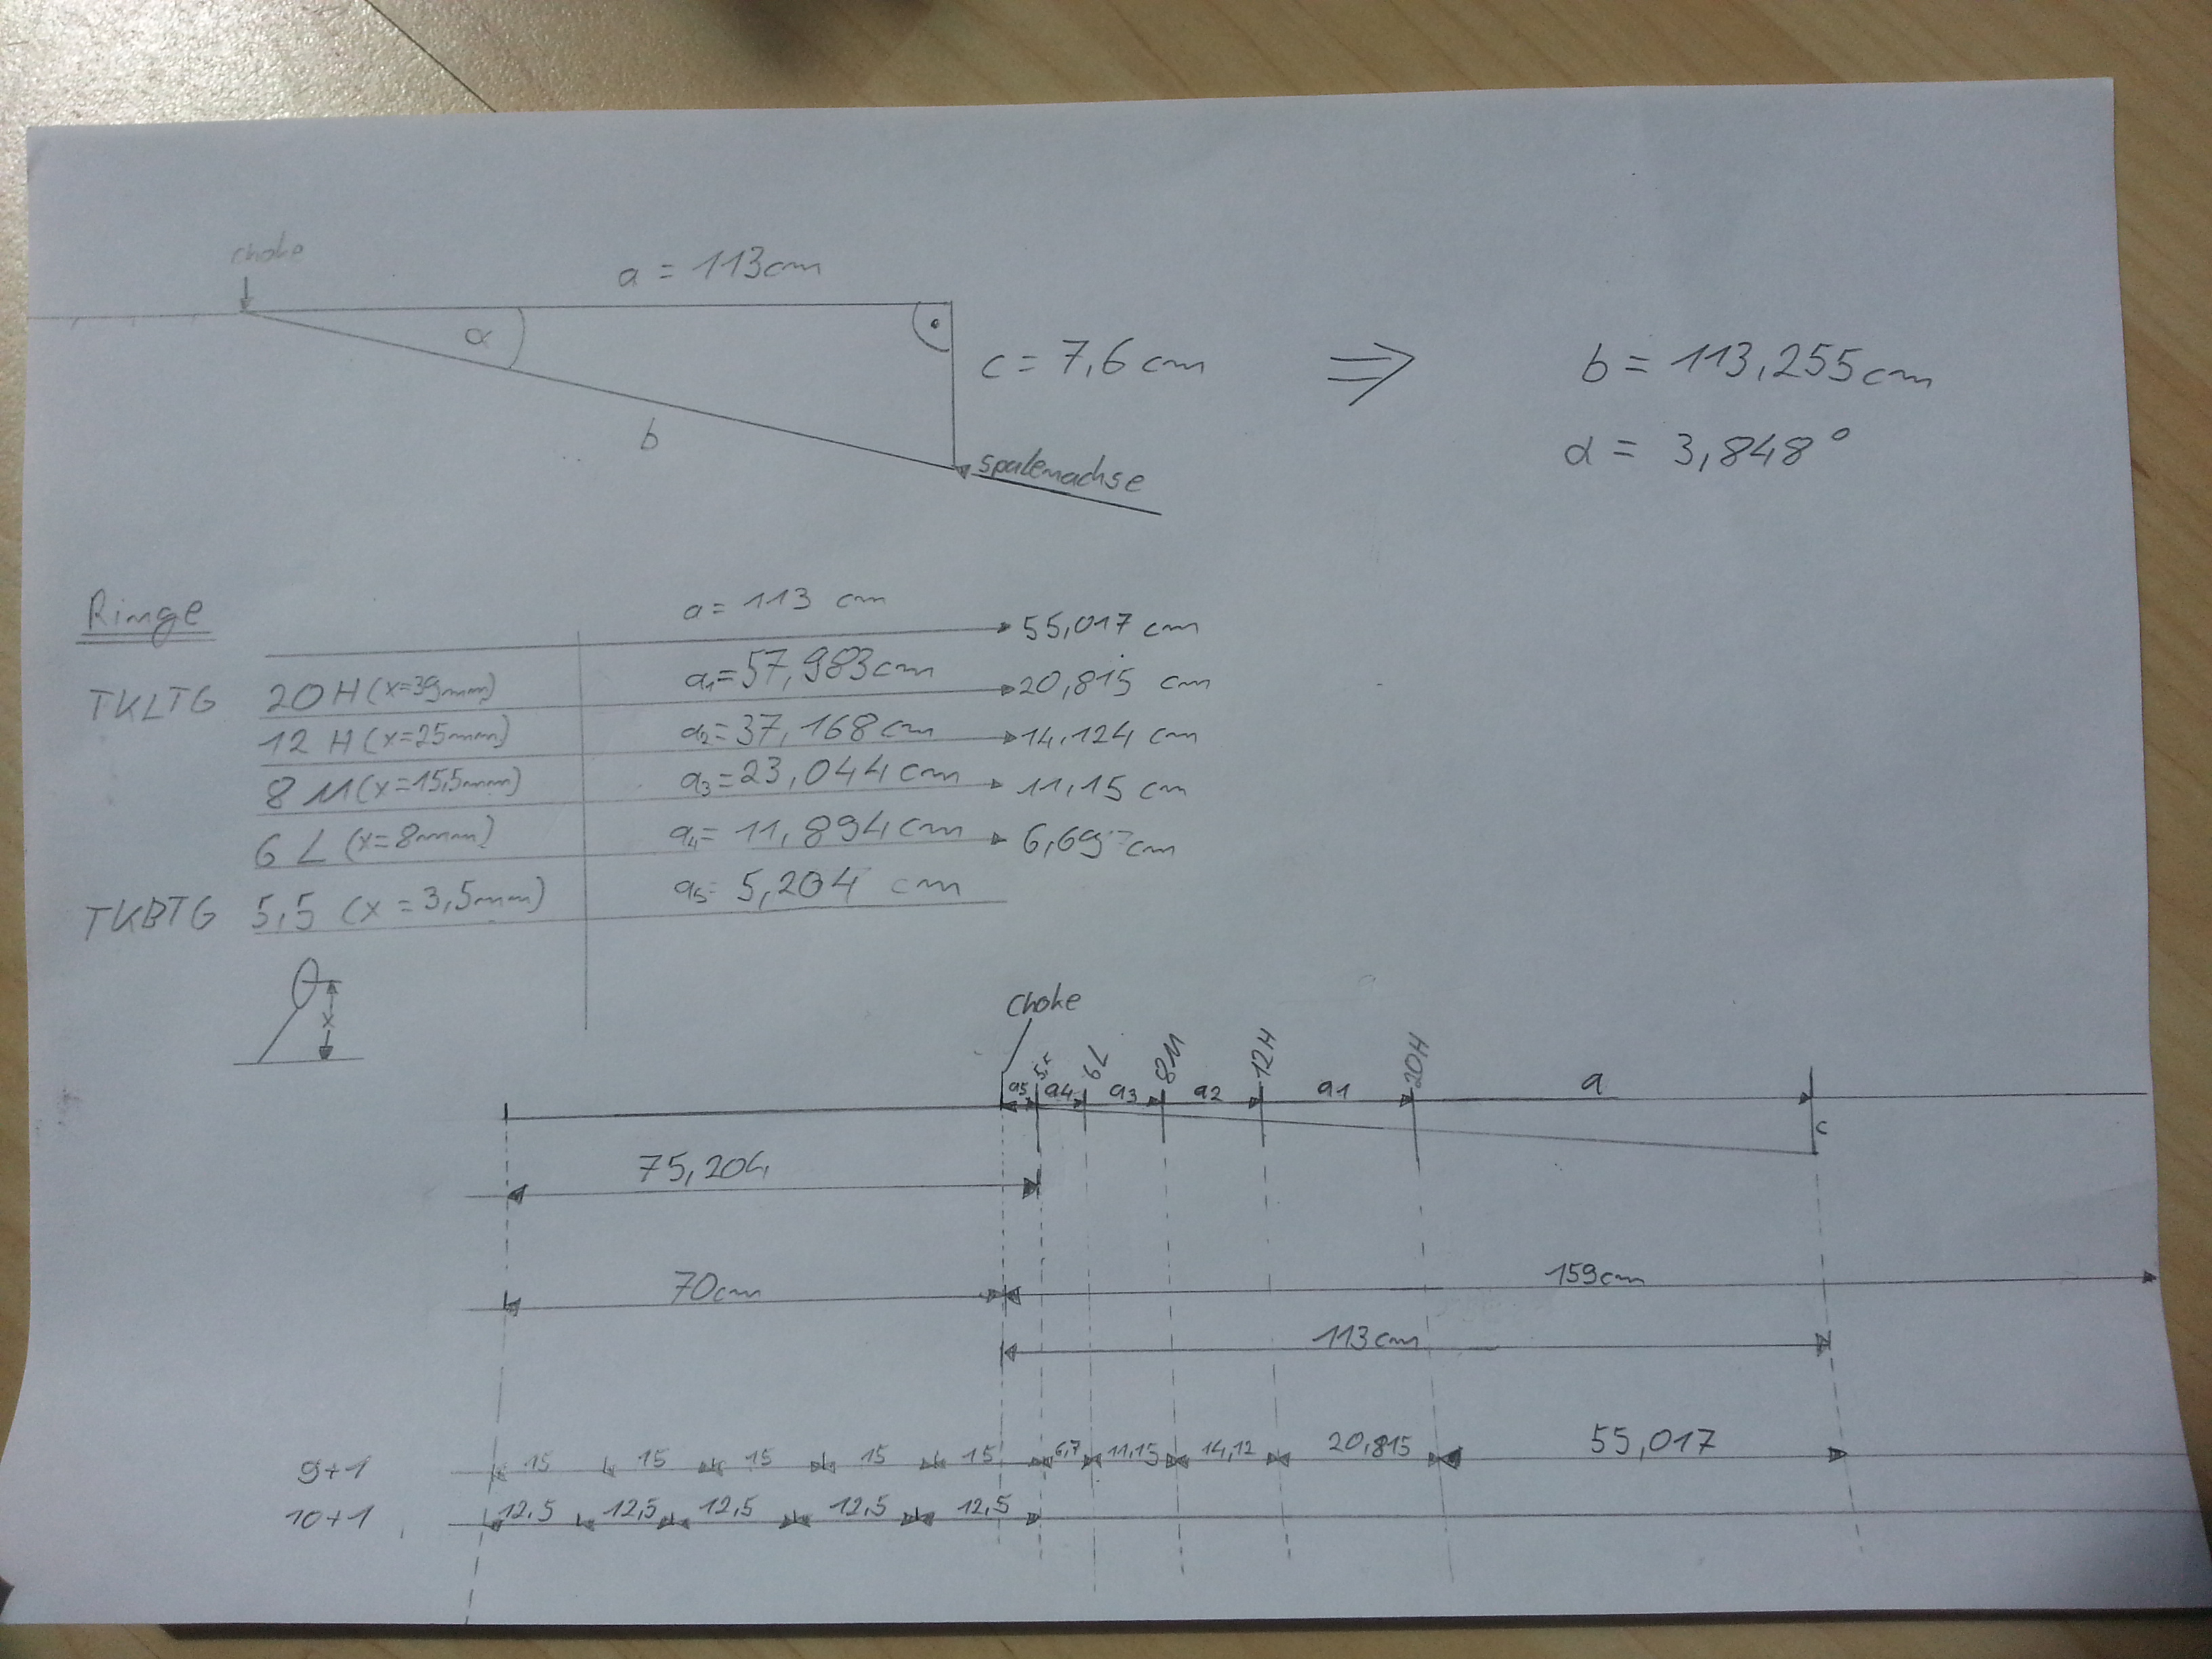 choke
a = 113cm
α
c = 7,6 cm
b
⇒ b = 113,255cm
α = 3,848°
Ringe
a = 113 cm
55,017 cm
TKLTG 20H (x=39mm) a1=57,983cm 20,815 cm
12 H (x=25mm) a2=37,168cm 14,124 cm
8 M (x=15,5mm) a3=23,044cm 11,15 cm
6 L (x=8mm) a4= 11,894cm 6,69 cm
TKBTG 5,5 (x = 3,5mm) a5= 5,204 cm
x
Choke
5,5 6L 8M 12H 20H
a5 a4 a3 a2 a1 a
c
75,204
70cm 159cm
113cm
9+1 15 15 15 15 15 6,7 11,15 14,12 20,815 55,017
10+1 12,5 12,5 12,5 12,5 12,5